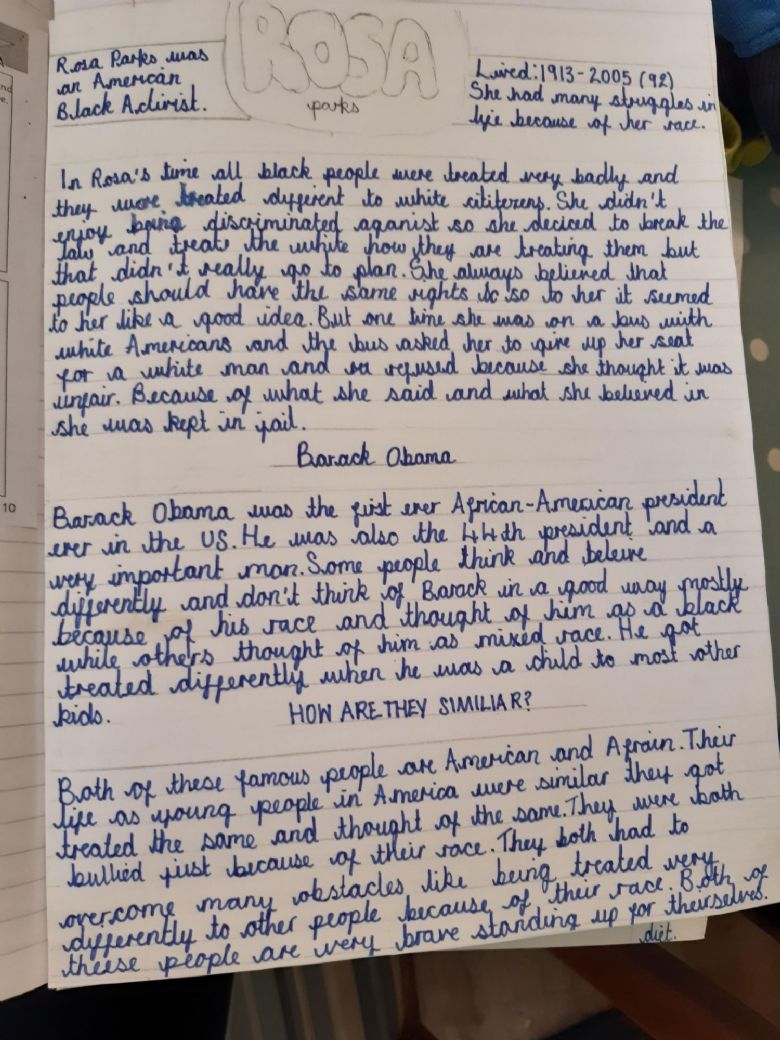 ROSA
parks
Rosa Parks was
an American
Black Activist.
Lived: 1913 - 2005 (92)
She had many struggles in
life because of her race.
In Rosa's time all black people were treated very badly and
they were treated different to white citizens. She didn't
enjoy being discriminated aganist so she decided to break the
law and treat the white how they are treating them but
that didn't really go to plan. She always believed that
people should have the same rights so to her it seemed
to her like a good idea. But one time she was on a bus with
white Americans and the bus asked her to give up her seat
for a white man and refused because she thought it was
unfair. Because of what she said and what she believed in
she was kept in jail.
Barack Obama
Barack Obama was the first ever African-American president
ever in the US. He was also the 44th president and a
very important man. Some people think and beleive
differently and don't think of Barack in a good way mostly
because of his race and thought of him as a black
while others thought of him as mixed race. He got
treated differently when he was a child to most other
kids.
HOW ARE THEY SIMILIAR?
Both of these famous people are American and Afrain. Their
life as young people in America were similar they got
treated the same and thought of the same. They were both
bullied just because of their race. They both had to
overcome many obstacles like being treated very
differently to other people because of their race. Both of
theese people are very brave standing up for theirselves.
10